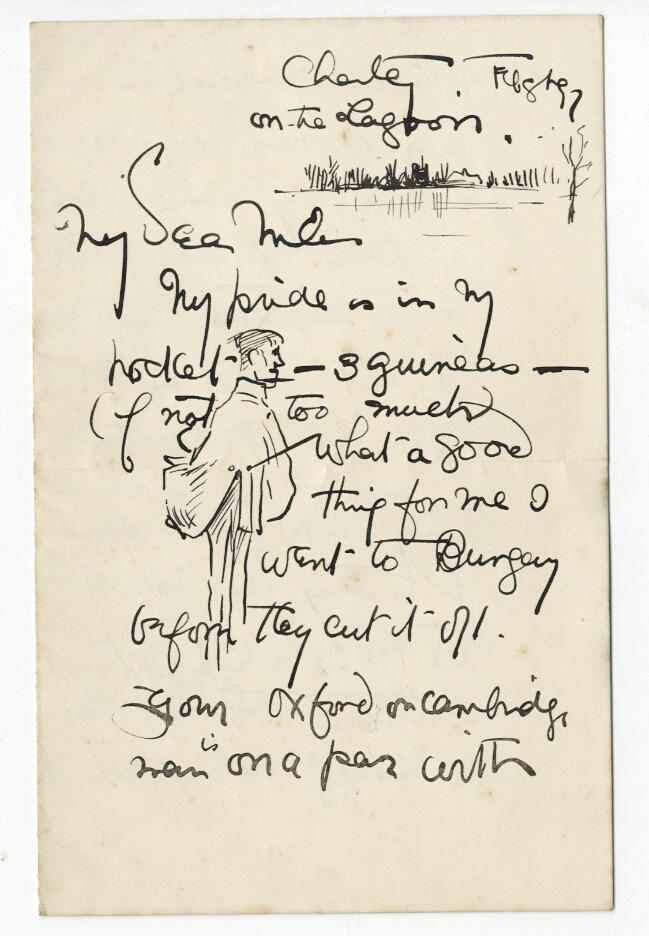 on-the Lagoon.
My Dear
My pride is in my
pocket — 3 guineas —
(if not too much)
what a good
thing for me I
went to Bungay
before they cut it off.
your Oxford or Cambridge
man is on a par with